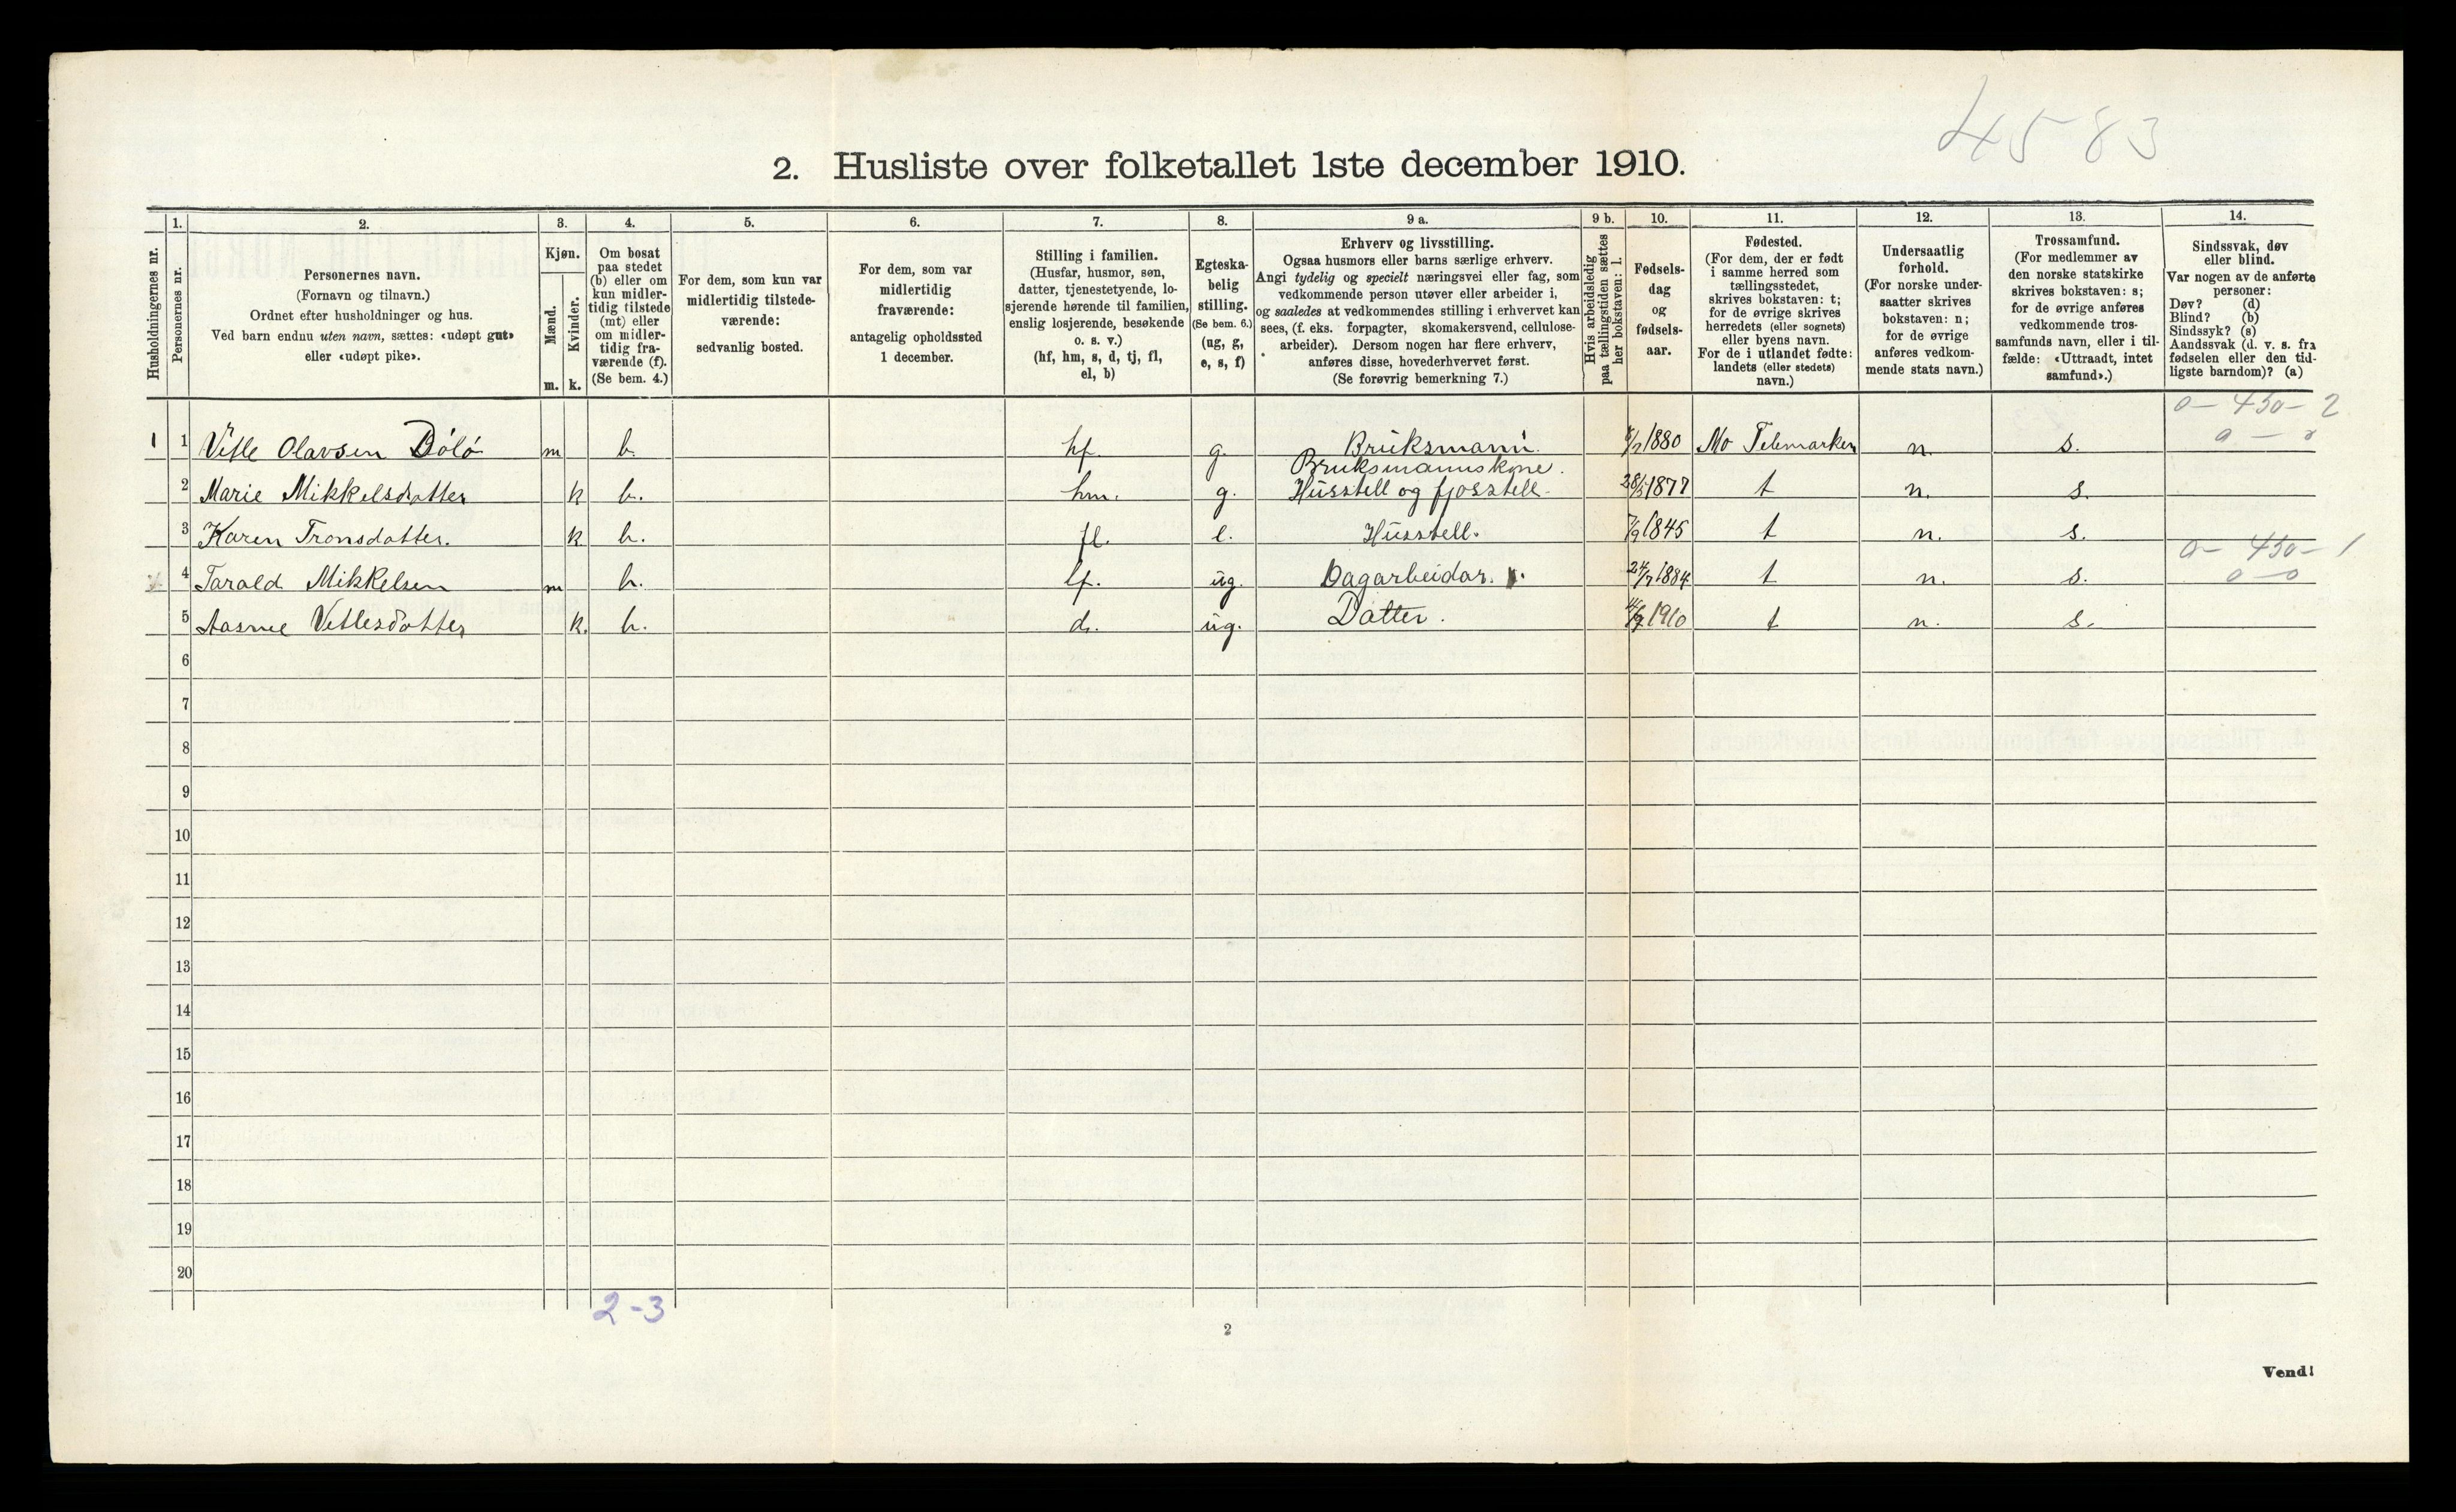 4583
2. Husliste over folketallet 1ste december 1910.
Husholdningernes nr.
1.
Personernes nr.
2.
Personernes navn.
(Fornavn og tilnavn.)
Ordnet efter husholdninger og hus.
Ved barn endnu uten navn, sættes: «udøpt gut»
eller «udøpt pike».
3.
Kjøn.
Mænd.
m.
Kvinder.
k.
4.
Om bosat
paa stedet
(b) eller om
kun midler-
tidig tilstede
(mt) eller
om midler-
tidig fra-
værende (f).
(Se bem. 4.)
5.
For dem, som kun var
midlertidig tilstede-
værende:
sedvanlig bosted.
6.
For dem, som var
midlertidig
fraværende:
antagelig opholdssted
1 december.
7.
Stilling i familien.
(Husfar, husmor, søn,
datter, tjenestetyende, lo-
sjerende hørende til familien,
enslig losjerende, besøkende
o. s. v.)
(hf, hm, s, d, tj, fl,
el, b)
8.
Egteska-
belig
stilling.
(Se bem. 6.)
(ug, g,
e, s, f)
9 a.
Erhverv og livsstilling.
Ogsaa husmors eller barns særlige erhverv.
Angi tydelig og specielt næringsvei eller fag, som
vedkommende person utøver eller arbeider i,
og saaledes at vedkommendes stilling i erhvervet kan
sees, (f. eks. forpagter, skomakersvend, cellulose-
arbeider). Dersom nogen har flere erhverv,
anføres disse, hovederhvervet først.
(Se forøvrig bemerkning 7.)
9 b.
Hvis arbeidsledig
paa tællingstiden sættes
her bokstaven: l.
10.
Fødsels-
dag
og
fødsels-
aar.
11.
Fødested.
(For dem, der er født
i samme herred som
tællingsstedet,
skrives bokstaven: t;
for de øvrige skrives
herredets (eller sognets)
eller byens navn.
For de i utlandet fødte:
landets (eller stedets)
navn.)
12.
Undersaatlig
forhold.
(For norske under-
saatter skrives
bokstaven: n;
for de øvrige
anføres vedkom-
mende stats navn.)
13.
Trossamfund.
(For medlemmer av
den norske statskirke
skrives bokstaven: s;
for de øvrige anføres
vedkommende tros-
samfunds navn, eller i til-
fælde: «Uttraadt, intet
samfund».)
14.
Sindssvak, døv
eller blind.
Var nogen av de anførte
personer:
Døv? (d)
Blind? (b)
Sindssyk? (s)
Aandssvak (d. v. s. fra
fødselen eller den tid-
ligste barndom)? (a)
0 — 450 — 2
1 1 Vetle Olavsen Dóló m b. hf g. Brüksmann 1880 Mo Telemarken n. s.
Bruksmannskone.
2 Marie Mikkelsdatter k b. hm. g. Hüsstell og fjosstell 1877 t n. s.
3 Karen Tronsdatter. k b. fl. e. Hüsstell. 1845 t n. s.
0 — 450 — 1
4 Tarald Mikkelsen m b. üg. Dagarbeidar. 24/7 1884 t n. s. 0 — 0
5 Aasne Vetlesdatter k. b. d. üg. Datter. 1910 t n. s.
6
7
8
9
10
11
12
13
14
15
16
17
18
19
20
2-3
2
Vend!